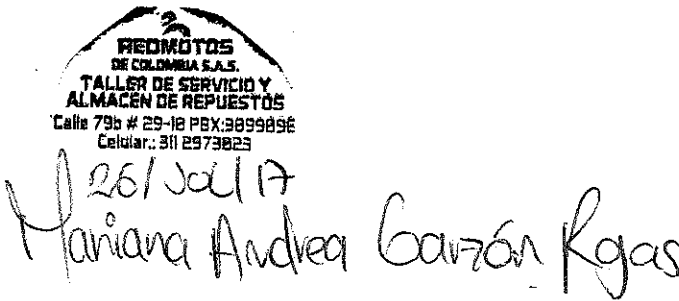 REDMOTOS
DE COLOMBIA S.A.S.
TALLER DE SERVICIO Y
ALMACEN DE REPUESTOS
Calle 79b # 29-18 PBX:3099096
Celular.: 311 2973823
26/JUL/17
Mariana Andrea Garzón Rojas